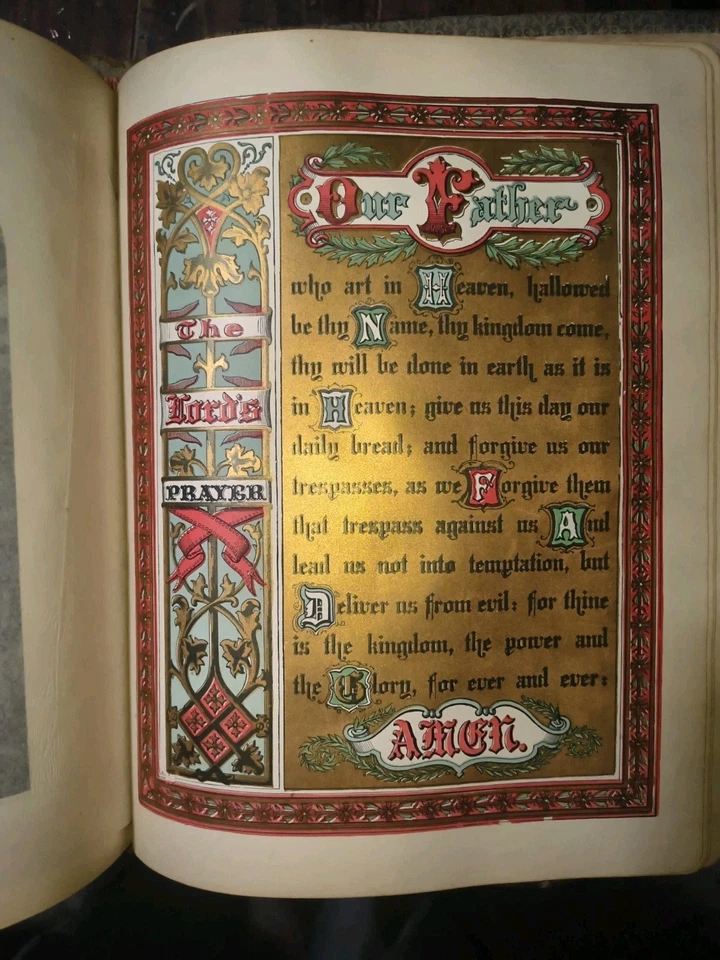 The
Lord's
PRAYER
Our Father
who art in Heaven, hallowed
be thy Name, thy kingdom come,
thy will be done in earth as it is
in Heaven; give us this day our
daily bread; and forgive us our
trespasses, as we Forgive them
that trespass against us And
lead us not into temptation, but
Deliver us from evil: for thine
is the kingdom, the power and
the Glory, for ever and ever:
AMEN.